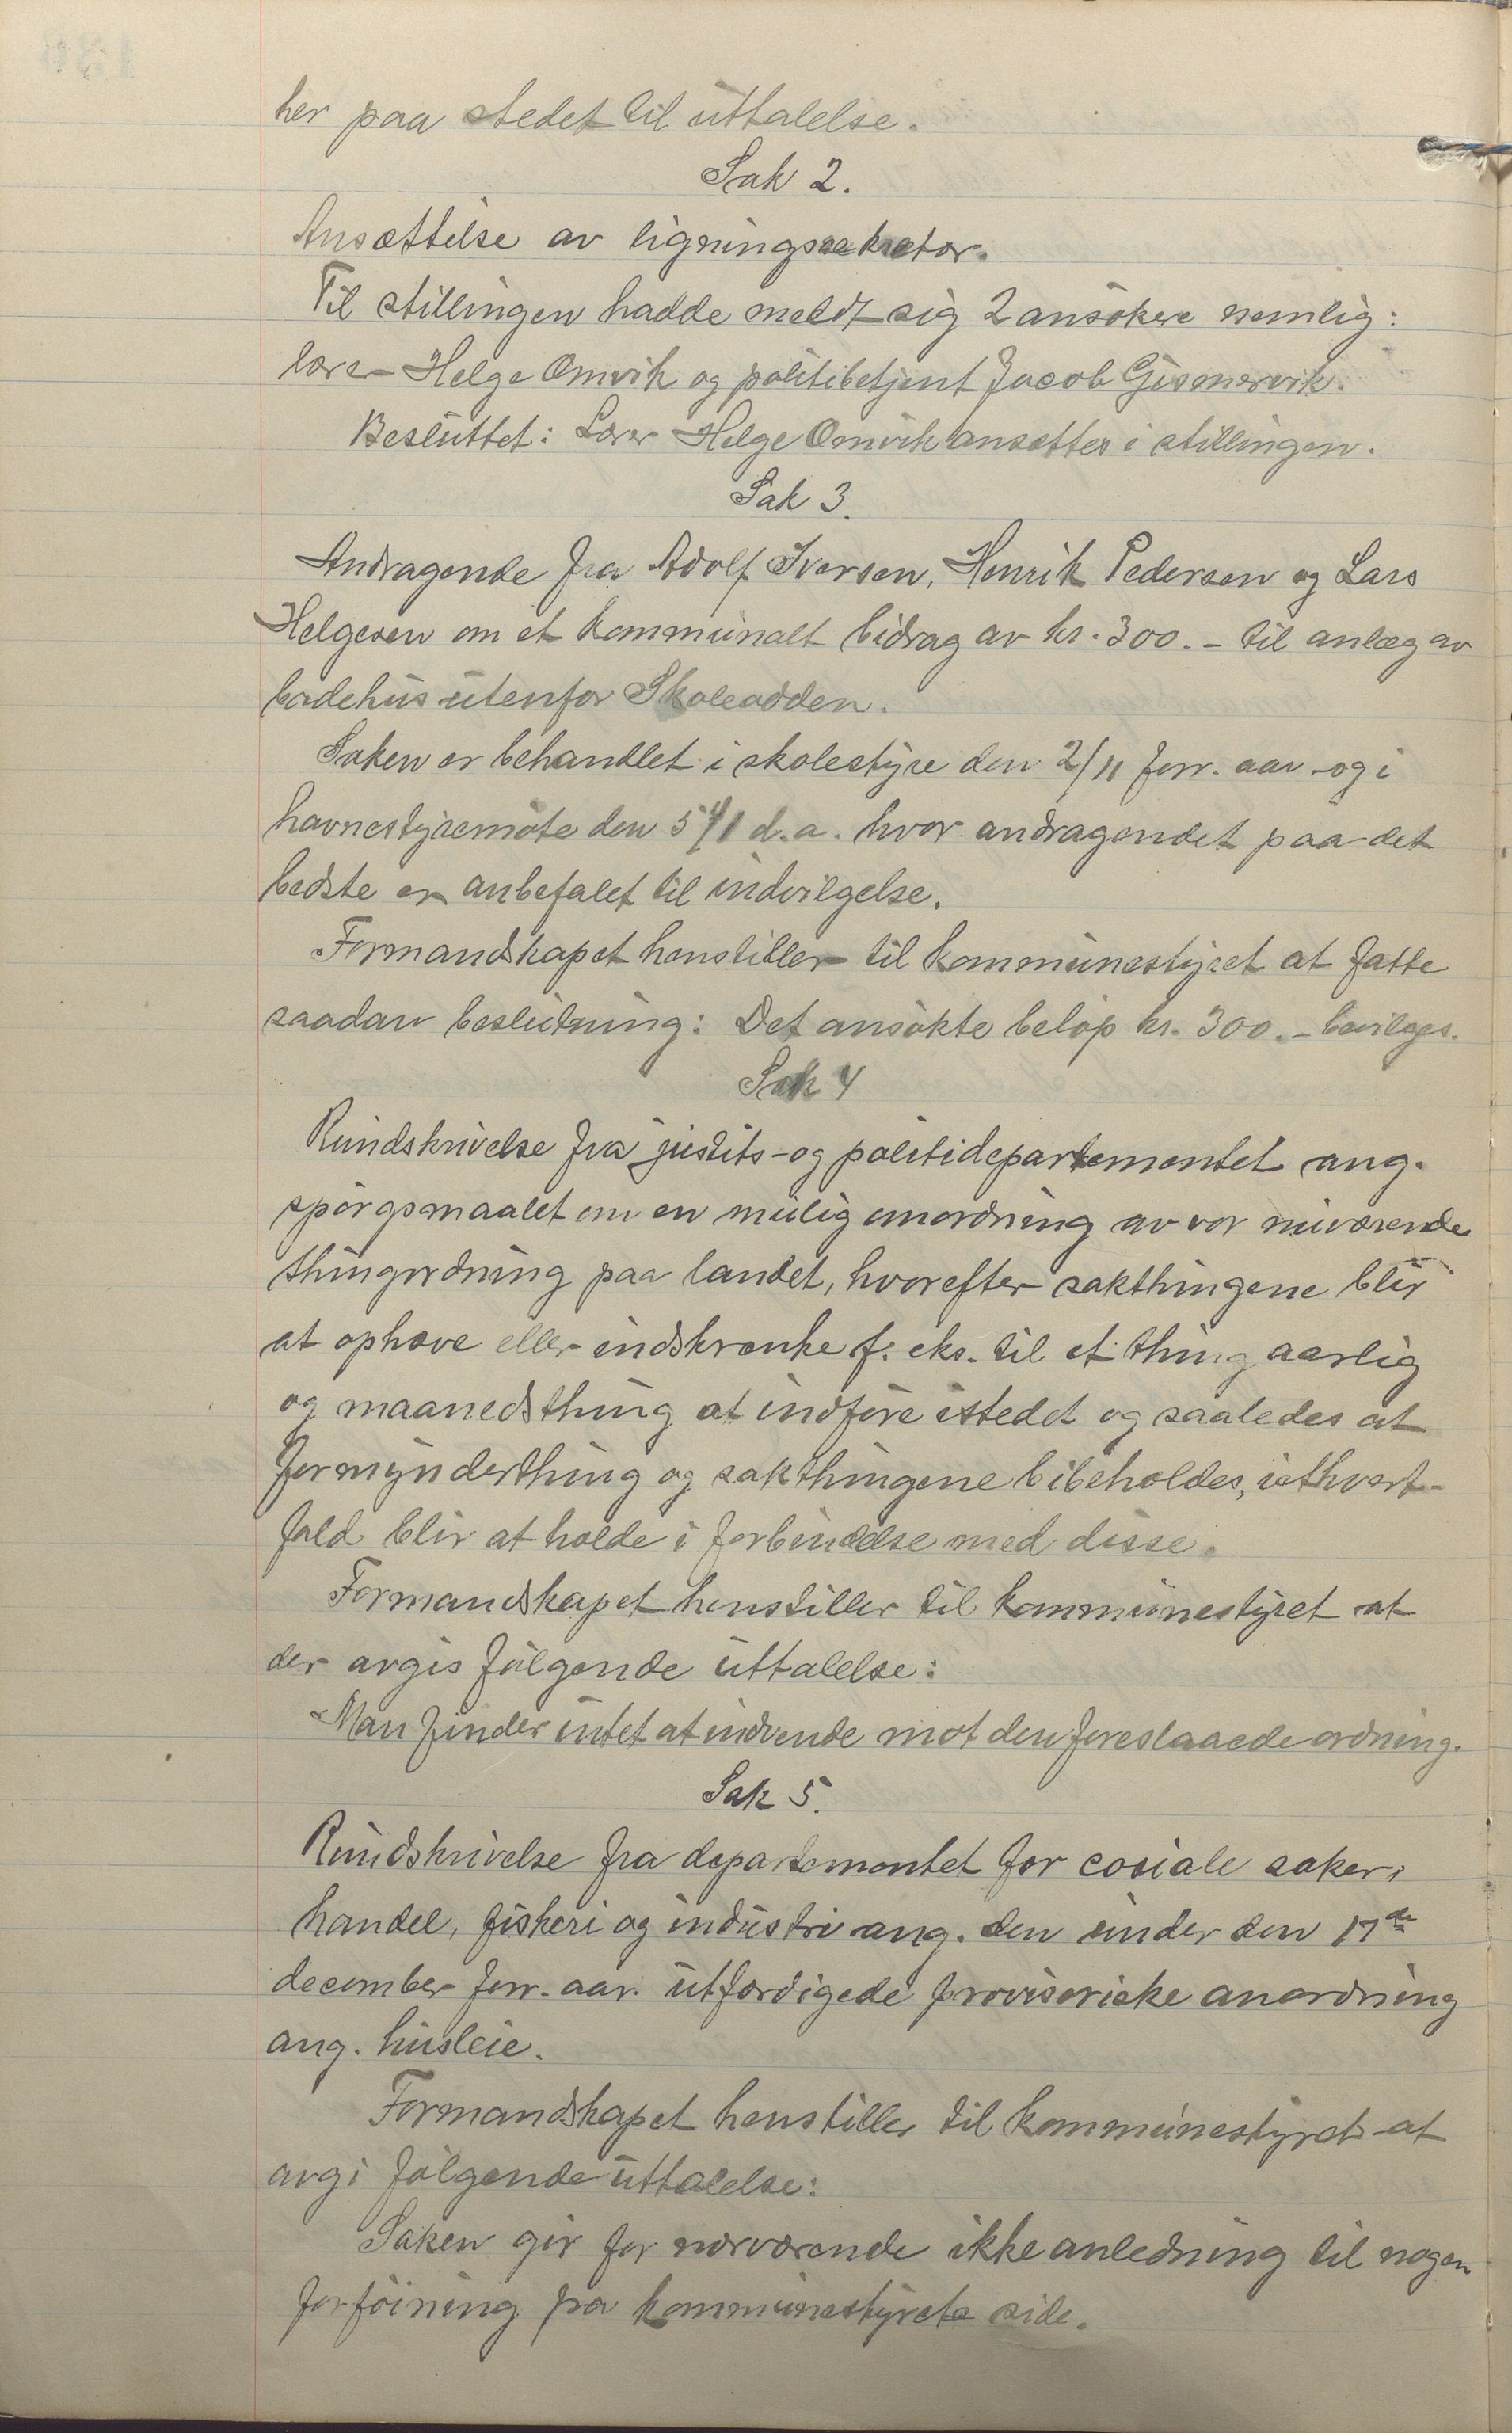 her paa stedet til uttalelse.
Sak 2.
Ansættelse av ligningssekretær.
Til stillingen hadde meldt sig 2 ansökere nemlig:
lærer Helge Omvik og politibetjent Jacob Gismarvik.
Besluttet: Lærer Helge Omvik ansættes i stillingen.
Sak 3.
Andragende fra Adolf Iversen, Henrik Pedersen og Lars
Helgesen om et kommunalt bidrag av kr. 300.- til anlæg av
badehus utenfor Skoleodden.
Saken er behandlet i skolestyre den 2/11 forr. aar og i
havnestyremöte den d.a. hvor andragendet paa det
bedste er anbefalet til indvilgelse.
Formandskapet henstiller til kommunestyret at fatte
saadan beslutning: Det ansökte belöp kr. 300.- bevilges.
Sak 4
Rundskrivelse fra justits- og politidepartementet ang.
spörgsmaalet om en mulig omordning av vor nuværende
thingordning paa landet, hvorefter sakthingene blir
at ophæve eller indskrænke f. eks. til et thing aarlig
og maanedsthing at indföre istedet og saaledes at
formynderthing og sakthingene bibeholdes, iethvert-
fald blir at holde i forbindelse med disse.
Formandskapet henstiller til kommunestyret at
der avgis fölgende uttalelse:
Man finder intet at indvende mot den foreslaaede ordning.
Sak 5.
Rundskrivelse fra departementet for sociale saker,
handel, fiskeri og industri ang. den under den 17de
december forr. aar. utfærdigede provisoriske anordning
ang. husleie.
Formandskapet henstiller til kommunestyret at
avgi fölgende uttalelse:
Saken gir for nærværende ikke anledning til nogen
forföining fra kommunestyrets side.